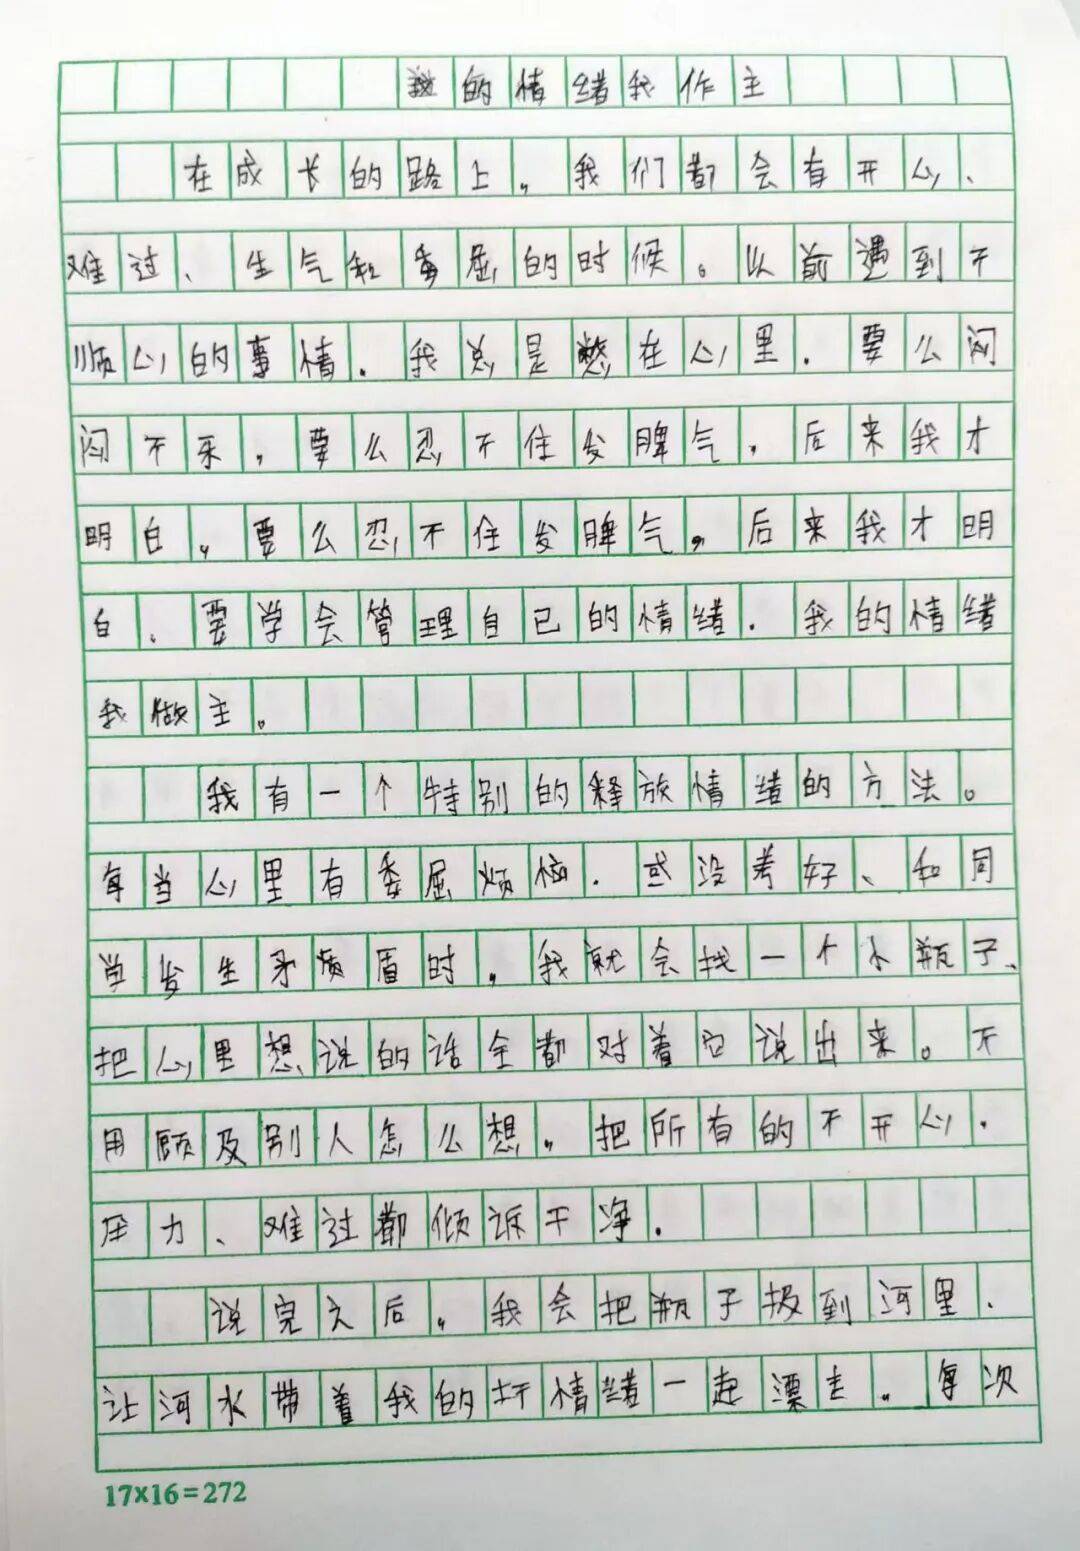 我的情绪我作主
在成长的路上，我们都会有开心、
难过、生气和委屈的时候。以前遇到不
顺心的事情.我总是憋在心里.要么闷
闷不乐，要么忍不住发脾气，后来我才
明白，要么忍不住发脾气，后来我才明
白、要学会管理自己的情绪.我的情绪
我做主。
我有一个特别的释放情绪的方法。
每当心里有委屈烦恼.或没考好、和同
学发生矛盾时，我就会找一个小瓶子、
把心里想说的话全都对着它说出来。不
用顾及别人怎么想，把所有的不开心.
压力、难过都倾诉干净.
说完之后，我会把瓶子扔到河里.
让河水带着我的坏情绪一起漂走.每次
17×16=272